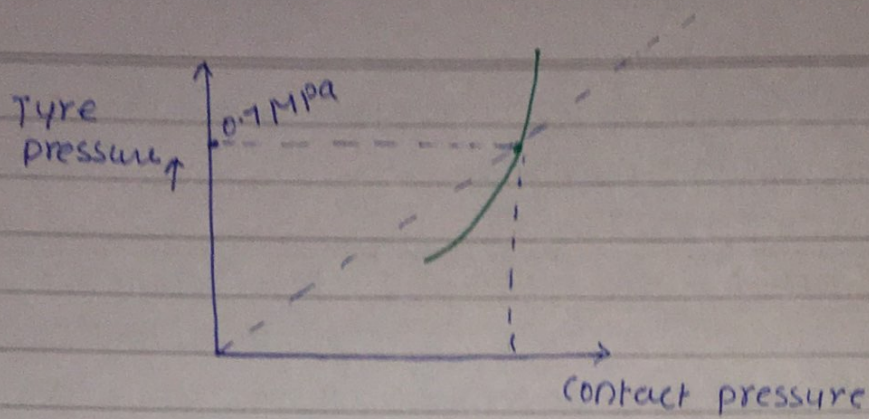 Tyre
pressure
0.7 MPa
Contact pressure